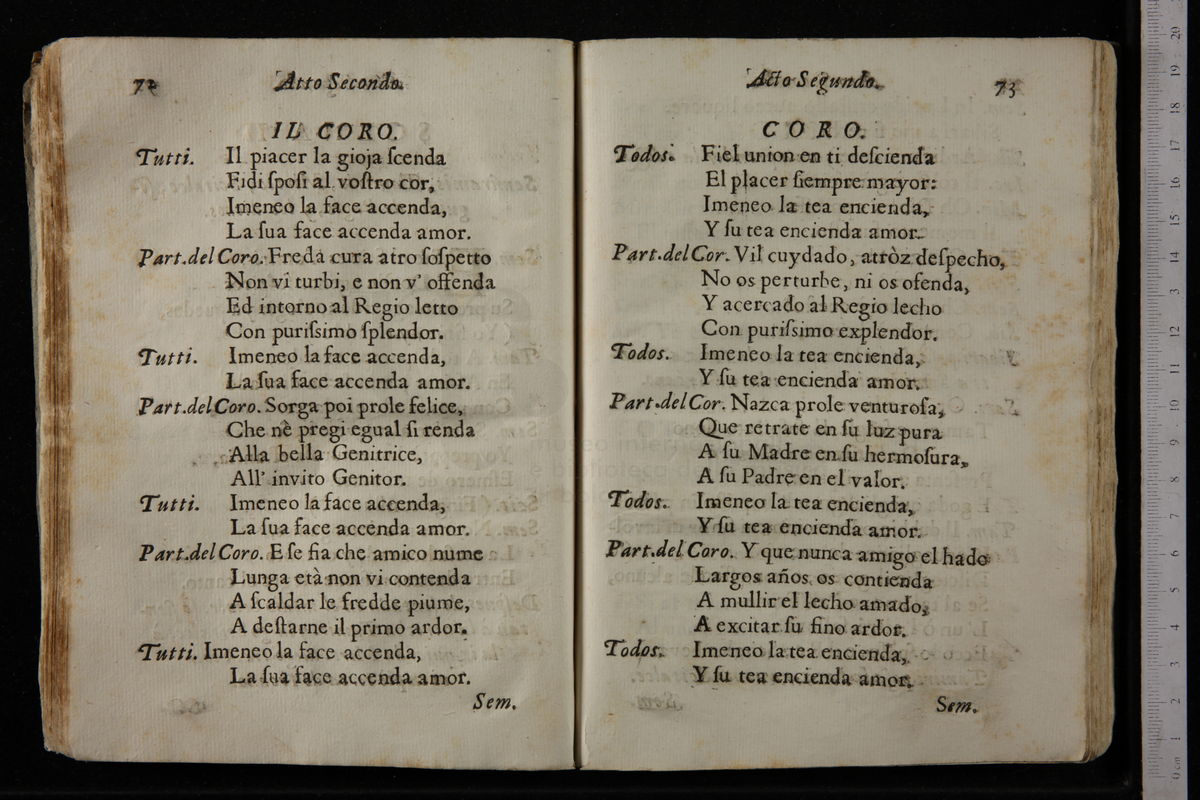 72
Atto Secondo.
IL CORO.
Tutti. Il piacer la gioja ſcenda
Fidi ſpoſi al voſtro cor,
Imeneo la face accenda,
La ſua face accenda amor.
Part.del Coro. Freda cura atro ſoſpetto
Non vi turbi, e non v' offenda
Ed intorno al Regio letto
Con puriſsimo ſplendor.
Tutti. Imeneo la face accenda,
La ſua face accenda amor.
Part.del Coro. Sorga poi prole felice,
Che nè pregi egual ſi renda
Alla bella Genitrice,
All' invito Genitor.
Tutti. Imeneo la face accenda,
La ſua face accenda amor.
Part.del Coro. E ſe fia che amico nume
Lunga età non vi contenda
A ſcaldar le fredde piume,
A deſtarne il primo ardor.
Tutti. Imeneo la face accenda,
La ſua face accenda amor.
Sem.
Acto Segundo.
73
CORO.
Todos. Fiel union en ti deſcienda
El placer ſiempre mayor:
Imeneo la tea encienda,
Y ſu tea encienda amor.
Part.del Cor. Vil cuydado, atròz deſpecho,
No os perturbe, ni os ofenda,
Y acercado al Regio lecho
Con puriſsimo explendor.
Todos. Imeneo la tea encienda,
Y ſu tea encienda amor.
Part.del Cor. Nazca prole venturoſa,
Que retrate en ſu luz pura
A ſu Madre en ſu hermoſura,
A ſu Padre en el valor.
Todos. Imeneo la tea encienda,
Y ſu tea encienda amor.
Part.del Coro. Y que nunca amigo el hado
Largos años os contienda
A mullir el lecho amado,
A excitar ſu fino ardor.
Todos. Imeneo la tea encienda,
Y ſu tea encienda amor.
Sem.